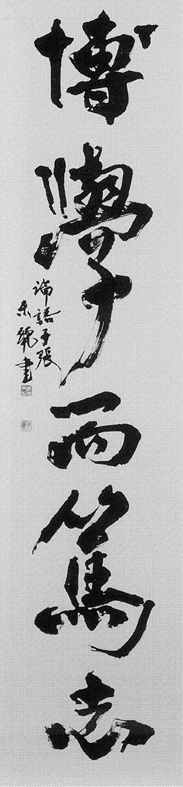 博學而篤志
論語子張
書